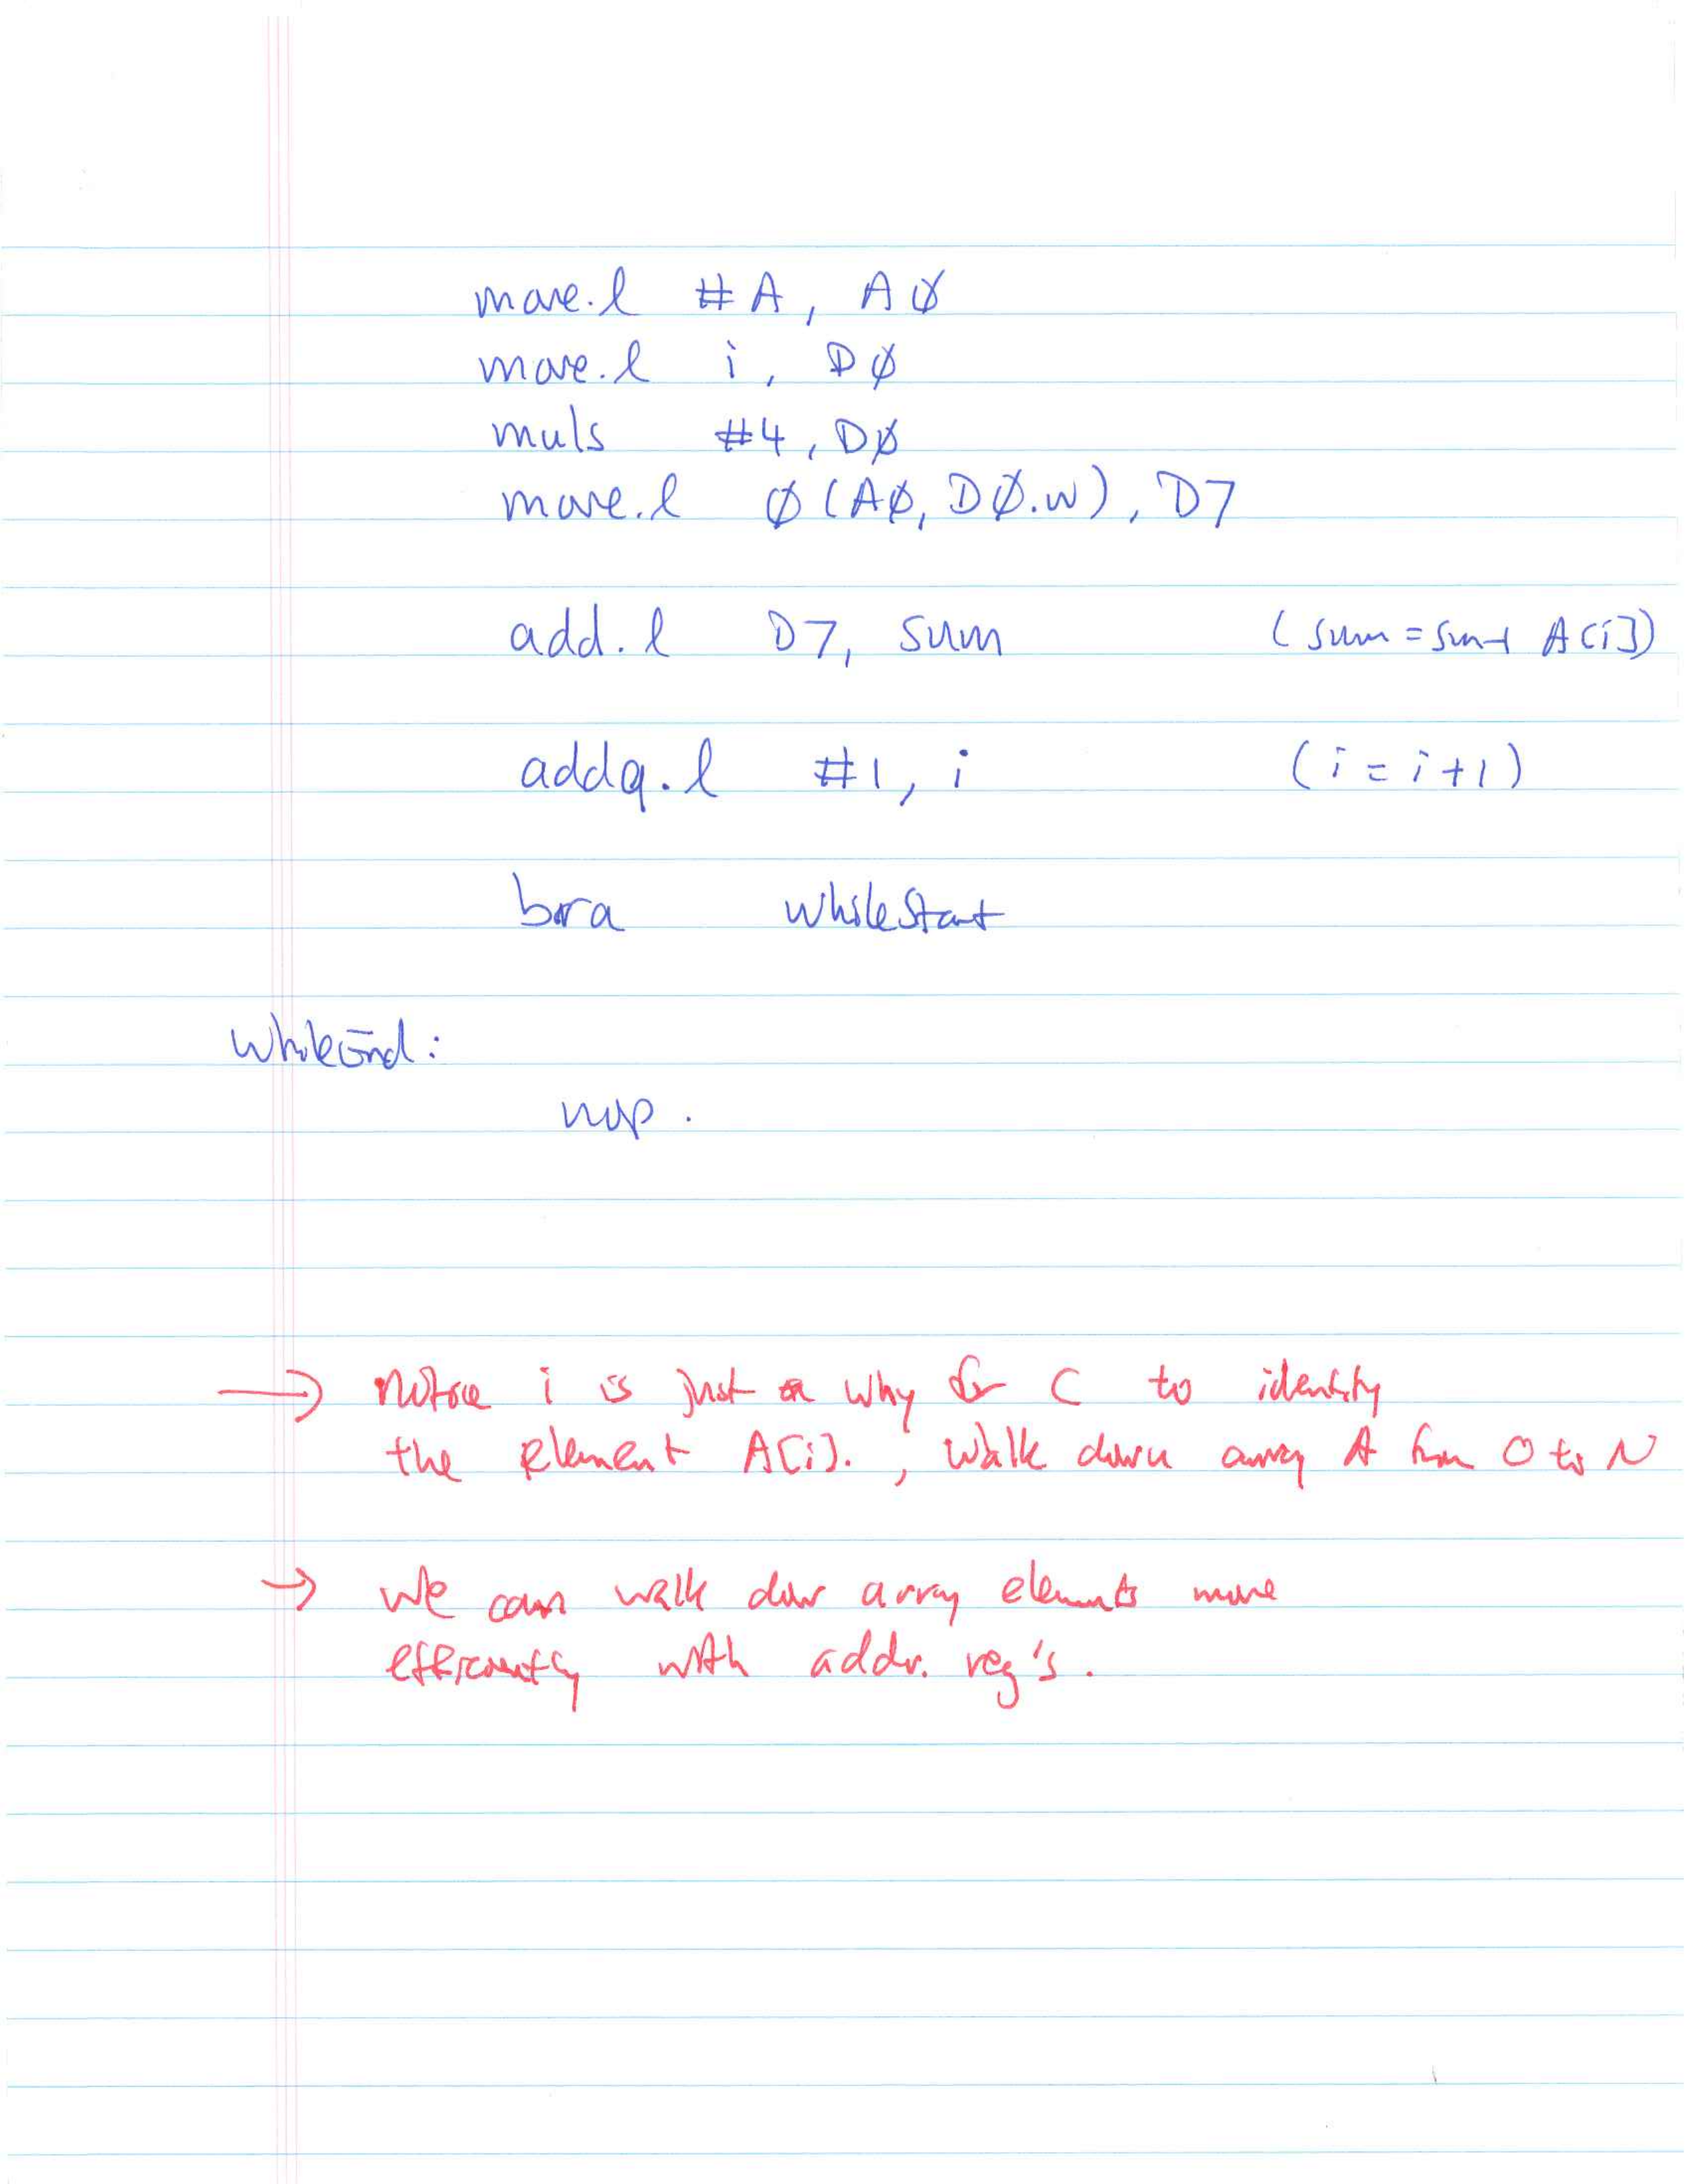 move.l #A, AØ
move.l i, DØ
muls #4, DØ
move.l Ø(AØ, DØ.w), D7
add.l D7, sum (sum = sum + A[i])
addq.l #1, i (i = i + 1)
bra whileStart
whileEnd:
nop.
→ Notice i is just a why for C to identify
the element A[i]. , walk down array A from 0 to N
→ We can walk down array elements more
efficiently with addr. reg's.